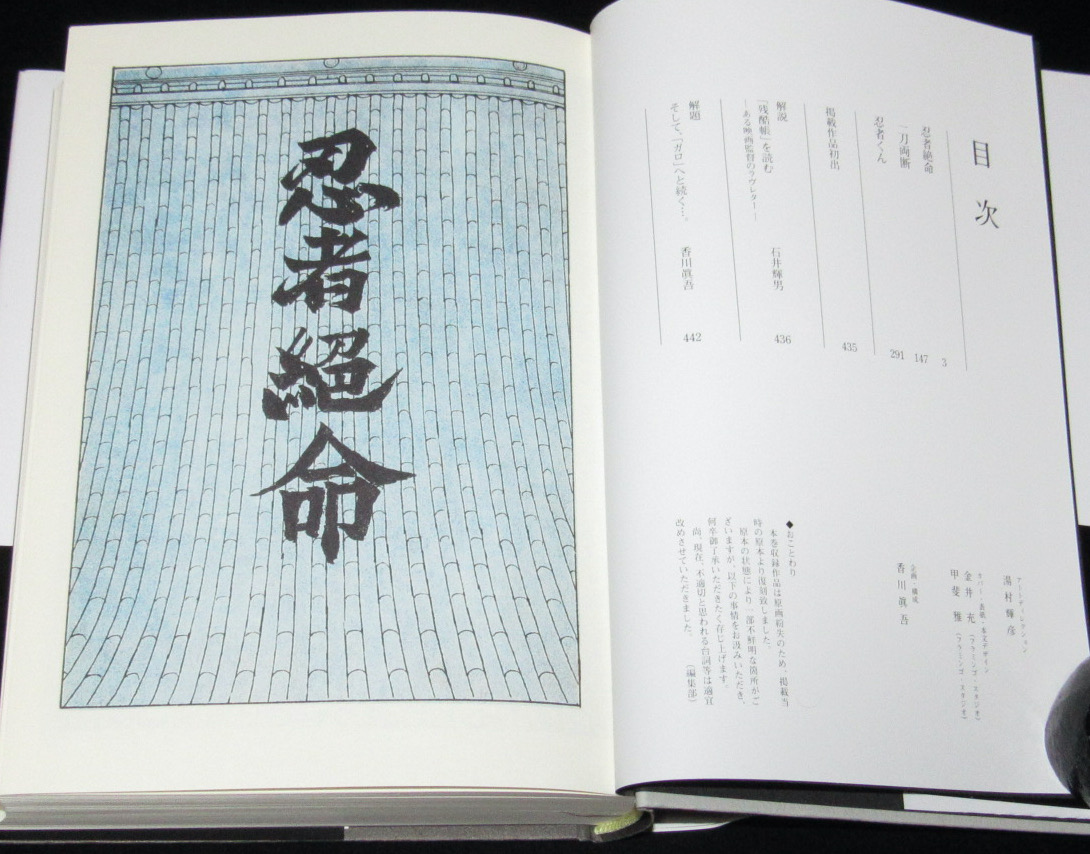 目次
忍者絶命
3
一刀両断
147
忍者くん
291
掲載作品初出
435
解説
『残酷帳』を読む
―ある映画監督のラヴレター―
石井輝男
436
解題
そして、『ガロ』へと続く…。
香川眞吾
442
アートディレクション
湯村輝彦
カバー・表紙・本文デザイン
金井 充(フラミンゴ・スタジオ)
甲斐 雅(フラミンゴ・スタジオ)
企画・構成
香川眞吾
◆おことわり
本巻収録作品は原画紛失のため、掲載当
時の原本より復刻致しました。
原本の状態により一部不鮮明な箇所がご
ざいますが、以下の事情をお汲みいただき、
何卒御了承いただきたく存じ上げます。
尚、現在、不適切と思われる台詞等は適宜
改めさせていただきました。
(編集部)
忍者絕命